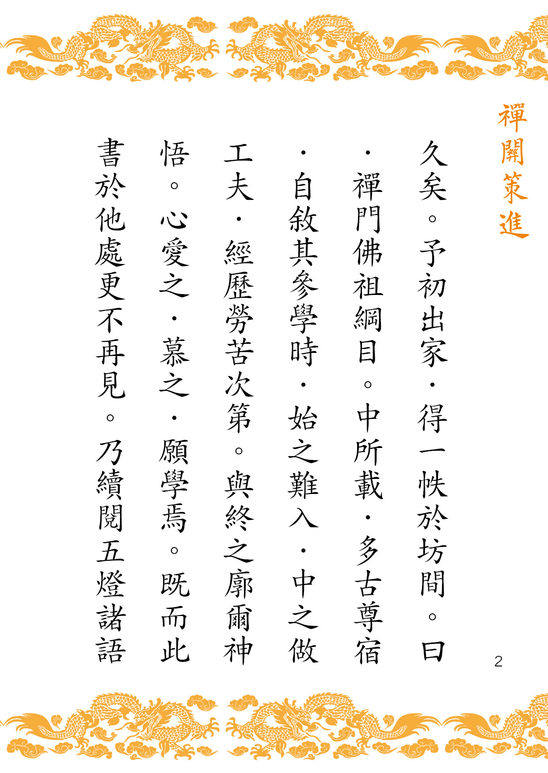 禪關策進
久矣。予初出家．得一帙於坊間。曰
．禪門佛祖綱目。中所載．多古尊宿
．自敘其參學時．始之難入．中之做
工夫．經歷勞苦次第。與終之廓爾神
悟。心愛之．慕之．願學焉。既而此
書於他處更不再見。乃續閱五燈諸語
2